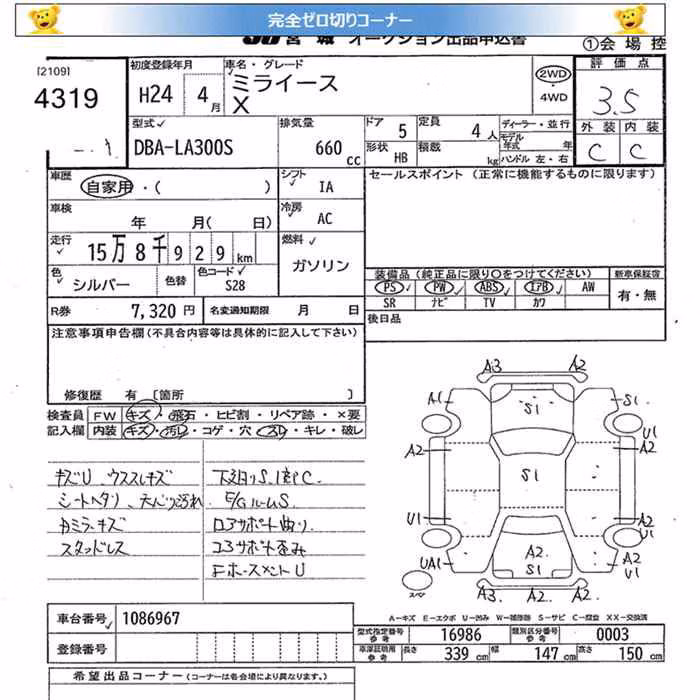 完全ゼロ切りコーナー
宮城 オークション出品申込書
①会場控
[2109]
4319
初度登録年月
H24 4月
車名・グレード
ミライース
X
2WD
・
4WD
評価点
3.5
外装 内装
C C
型式
DBA-LA300S
排気量
660 cc
ドア 5
定員 4人
形状 HB
積載 kg
ディーラー・並行
モデル年式 年
ハンドル 左・右
車歴
自家用・( )
シフト IA
セールスポイント (正常に機能するものに限ります)
車検
年 月( 日)
冷房 AC
走行
15万8千929km
燃料
ガソリン
色 シルバー
色替
色コード S28
装備品 (純正品に限り○をつけてください)
新車保証書
PS PW ABS エアB AW
SR ナビ TV カワ
有・無
R券 7,320円
名変通知期限 月 日
後日品
注意事項申告欄 (不具合内容等は具体的に記入して下さい)
修復歴 有 [箇所 ]
検査員記入欄
FW キズ・飛石・ヒビ割・リペア跡・×要
内装 キズ・汚レ・コゲ・穴・スレ・キレ・破レ
キズU、ウススレキズ
シートヘタリ、天ハリ汚れ
カミラーキズ
スタッドレス
下廻りS、1部C
E/GルームS
ロアサポート曲り
コアサポート歪み
FホースメントU
A3 A2
A1 S1 S1
U1
A2 A2
S1
U1 A2
U1
UA1 A2 A2
S1 U1
A3 A2 A2
スペア
A-キズ E-エクボ U-凹み W-補修跡 S-サビ C-腐食 XX-交換済
車台番号 1086967
登録番号
型式指定番号参考 16986
類別区分番号参考 0003
車庫証明用参考 長さ 339cm 幅 147cm 高さ 150cm
希望出品コーナー (コーナーは各会場により異なります。)